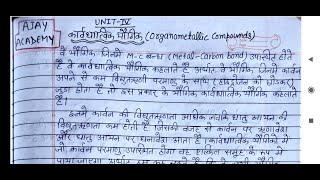 AJAY
ACADEMY
UNIT-IV
कार्बधात्विक यौगिक (Organometallic Compounds)
वे यौगिक जिनमें M-C बन्ध (Metal-Carbon bond) उपस्थित होते
है वे कार्बधात्विक यौगिक कहलाते हैं अर्थात् वे यौगिक जिनमें कार्बन
अपने से कम विद्युतऋणी परमाणु के साथ (हाइड्रोजन को छोड़कर)
जुड़ा होता है तो इस प्रकार के यौगिक कार्बधात्विक यौगिक कहलाते
हैं।
इनमें कार्बन की विद्युतऋणता अधिक जबकि धातु आयन की
विद्युतऋणता कम होती है जिसकी वजह से कार्बन पर ऋणावेश
और धातु आयन पर धनावेश आता है। कार्बधात्विक यौगिकों में
जो कार्बन परमाणु उपस्थित होगा वह एल्किल समूह के रूप में